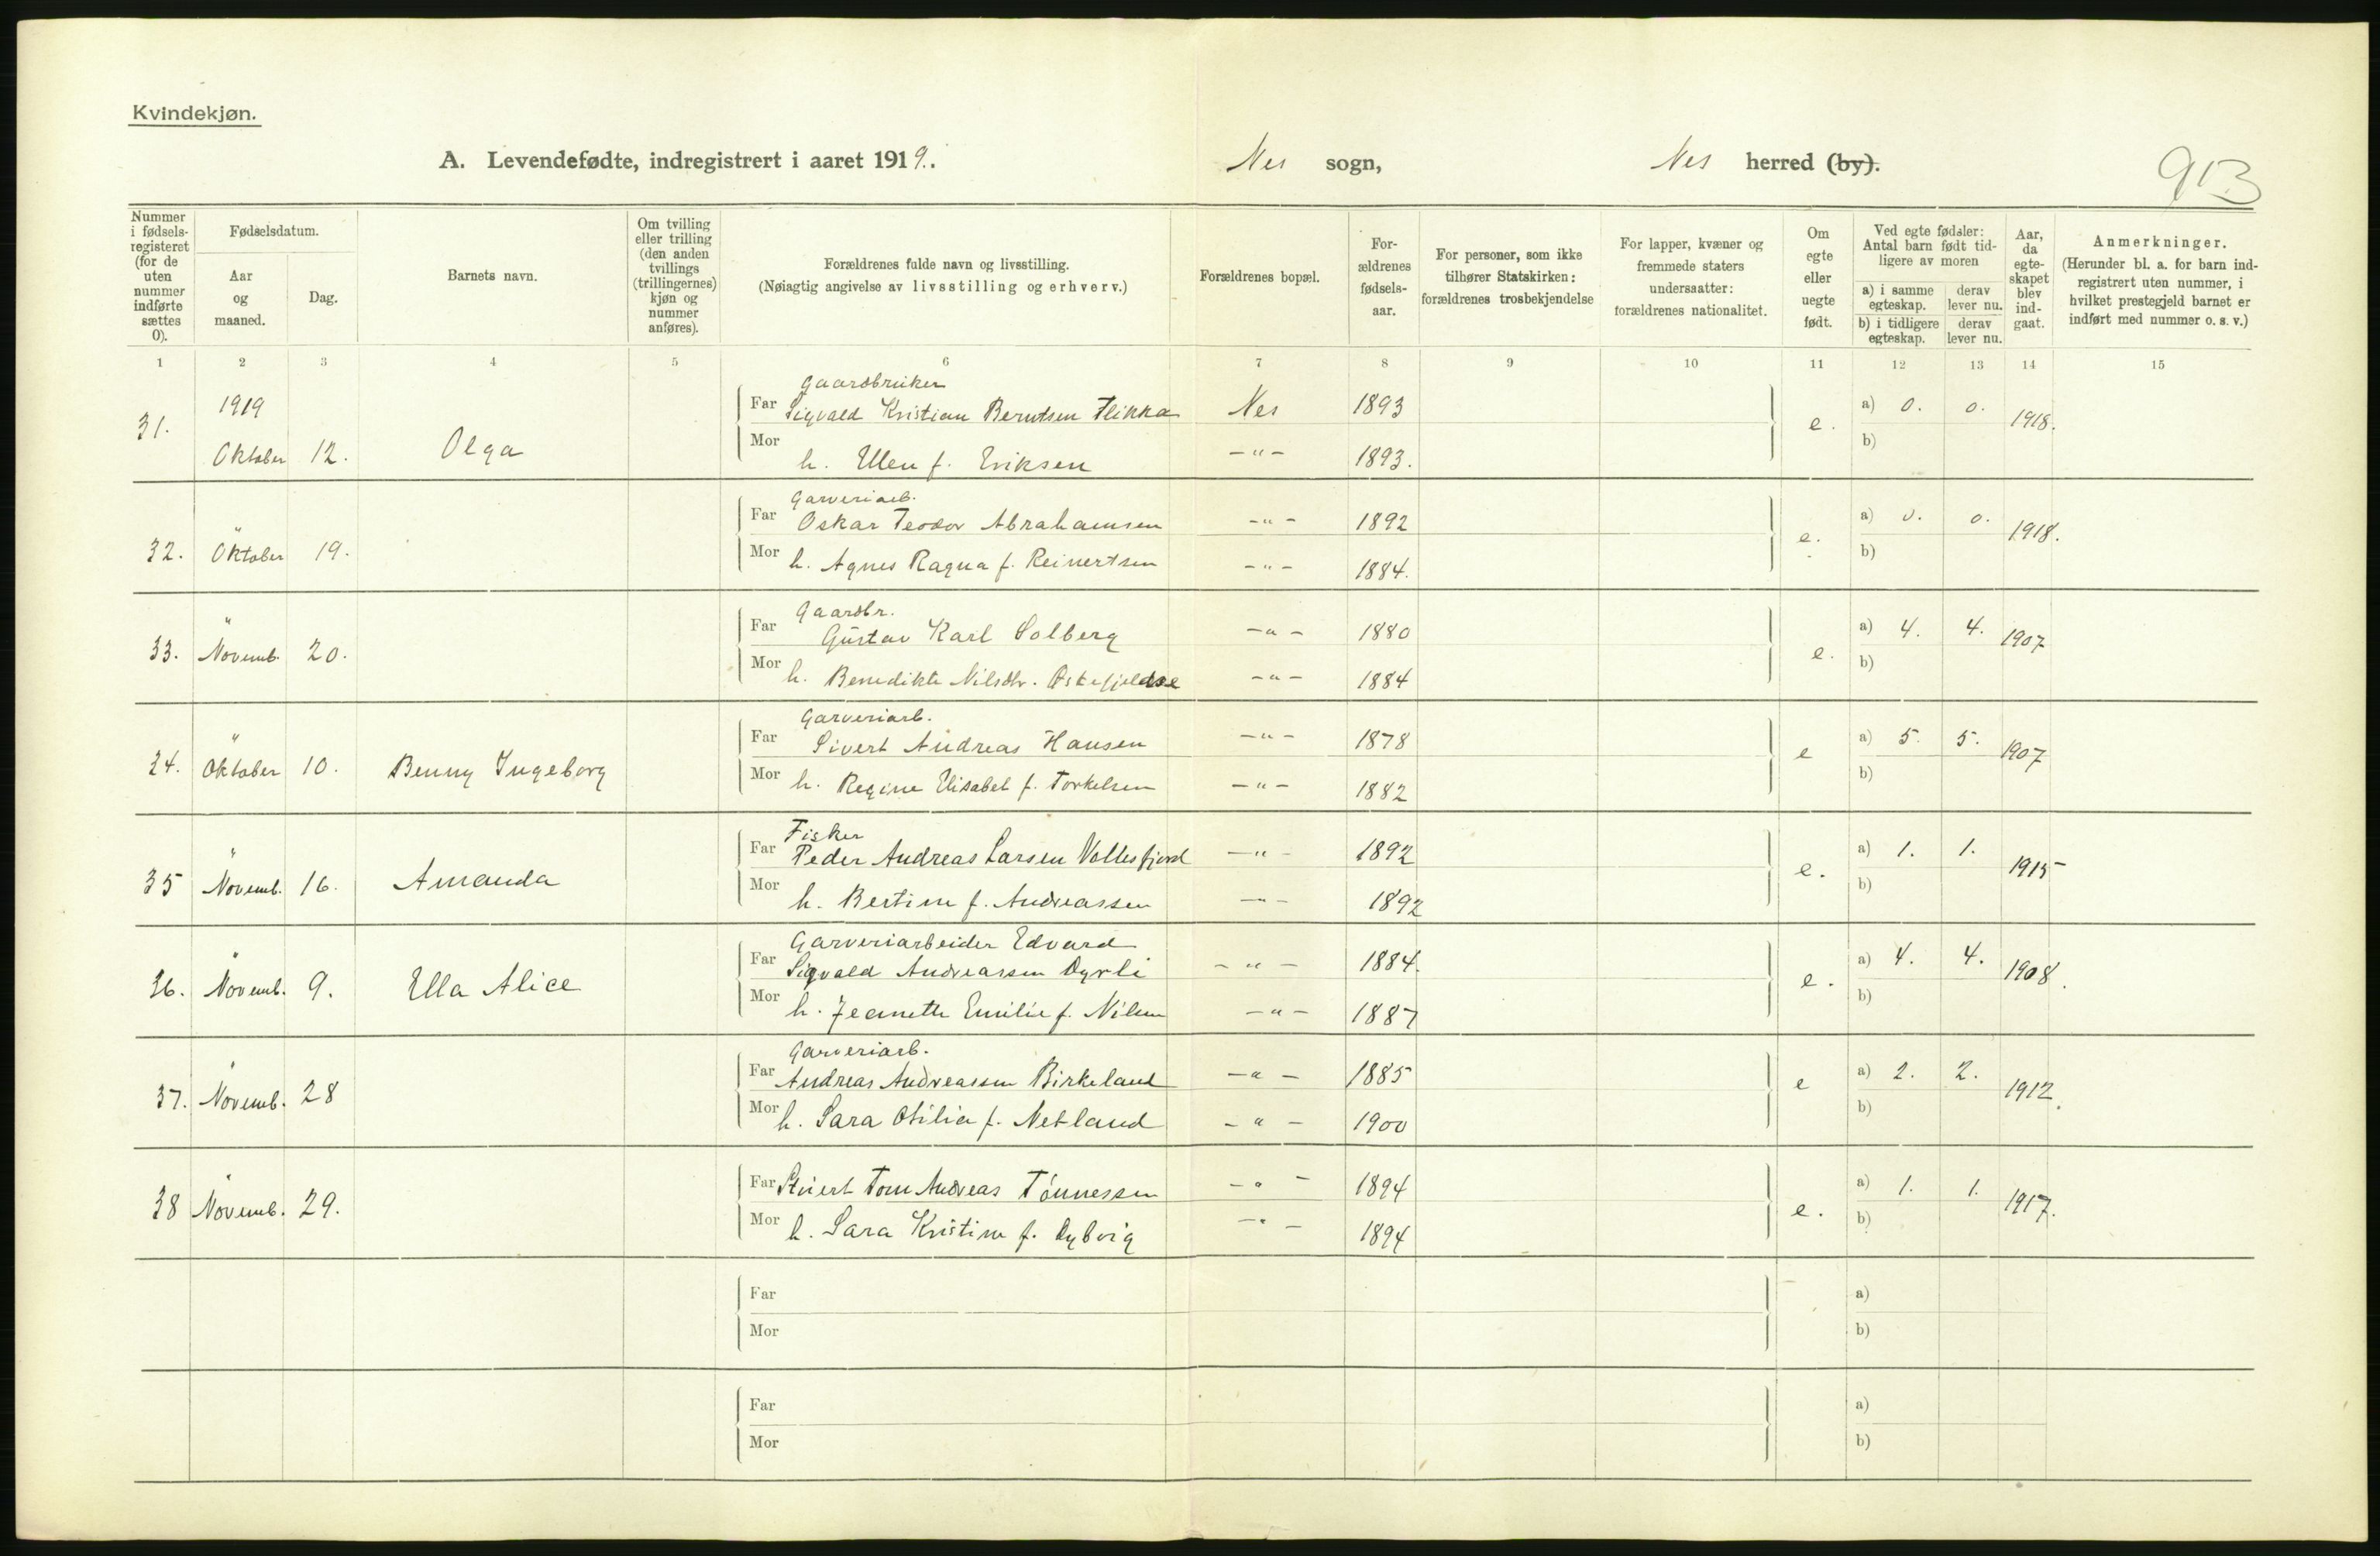 Kvindekjøn.
A. Levendefødte, indregistrert i aaret 1919. Nes sogn, Nes herred (by). 913
Nummer i fødsels-registeret (for de uten nummer indførte sættes 0).
Fødselsdatum.
Aar og maaned.
Dag.
Barnets navn.
Om tvilling eller trilling (den anden tvillings (trillingernes) kjøn og nummer anføres).
Forældrenes fulde navn og livsstilling.
(Nøiagtig angivelse av livsstilling og erhverv.)
Forældrenes bopæl.
For-ældrenes fødsels-aar.
For personer, som ikke tilhører Statskirken: forældrenes trosbekjendelse
For lapper, kvæner og fremmede staters undersaatter: forældrenes nationalitet.
Om egte eller uegte født.
Ved egte fødsler: Antal barn født tid-ligere av moren
a) i samme egteskap. derav lever nu.
b) i tidligere egteskap. derav lever nu.
Aar, da egte-skapet blev ind-gaat.
Anmerkninger.
(Herunder bl. a. for barn ind-registrert uten nummer, i hvilket prestegjeld barnet er indført med nummer o. s. v.)
1 2 3 4 5 6 7 8 9 10 11 12 13 14 15
Gaardbruker
31. 1919 Oktober 12. Olga Far Sigvald Kristian Berntsen Flikka Nes 1893 e. a) 0. 0. 1918.
Mor h. Ellen f. Eriksen -"- 1893. b)
Garveriarb.
32. " Oktober 19. Far Oskar Teodor Abrahamsen -"- 1892 e. a) 0. 0. 1918.
Mor h. Agnes Ragna f. Reinertsen -"- 1884. b)
Gaardbr.
33. " Novemb. 20. Far Gustav Karl Solberg -"- 1880 e. a) 4. 4. 1907
Mor h. Benedikte Nilsdtr. -"- 1884 b)
Garveriarb.
34. " Oktober 10. Benny Ingeborg Far Sivert Andreas Hansen -"- 1878 e a) 5. 5. 1907
Mor h. Regine Elisabet f. Torkelsen -"- 1882 b)
Fisker
35 " Novemb. 16. Amanda Far Peder Andreas Larsen Vollesfjord -"- 1892 e. a) 1. 1. 1915
Mor h. Bertine f. Andreassen -"- 1892 b)
Garveriarbeider Edvard
36. " Novemb. 9. Ella Alice Far Sigvald Andreassen Dyrli -"- 1884. e. a) 4. 4. 1908.
Mor h. Jeanette Emilie f. Nilsen -"- 1887 b)
Garveriarb.
37. " Novemb. 28 Far Andreas Andreassen Birkeland -"- 1885 e a) 2. 2. 1912.
Mor h. Sara Otilia f. Netland -"- 1900 b)
38 " Novemb. 29. Far Tom Andreas Tönnessen -"- 1894 e. a) 1. 1. 1917.
Mor h. Sara Kristine f. Dybvig -"- 1894 b)
Far a)
Mor b)
Far a)
Mor b)